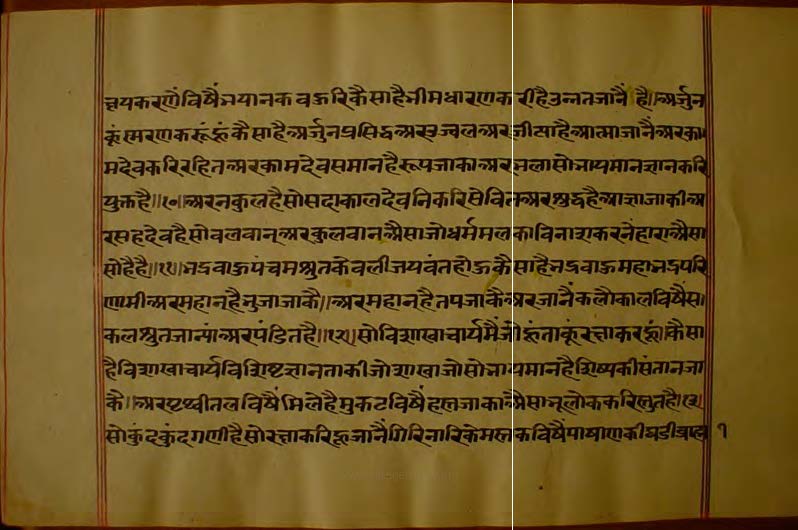 क्षयकरणैंविषैंभयानक बऊरिकैसाहैभीमधारणकरीहैउन्नतजानैं है॥अर्जुन
कूंस्मरणकरूंहूंकैसाहैअर्जुनप्रसिद्धअरउज्वलअरजीत्याहैआत्माजानैंअरका
मदेवकरिरहितअरकामदेवसमानहैरूपजाकाअरभलासोभायमानज्ञानकरि
युक्तहै॥१०॥अरनकुलहैसोसदाकालदेवनिकरिसेवितअरशुद्धहैआज्ञाजाकीअ
रसहदेवहैसोबलवान्अरकुलवानऐसाजोधर्ममलकाविनाशकरनेंहाराऐसा
सोहैहै॥११॥भद्रबाऊपंचमश्रुतकेवलीजयवंतहोऊकैसाहैभद्रबाऊमहाभद्रपरि
णामीअरमहानहैभुजाजाकै॥अरमहान्हैतपजाकैअरजानैंकलौकालविषैंसा
कलश्रुतजान्यांअरपंडितहै॥१२॥सोविशाखाचार्यमैंजोहूंताकूंरक्षाकरऊ।कैसा
हैविशाखाचार्यविशिष्टज्ञानताकीजोशाखाजोसोभायमानहैशिष्यकीसंतानजा
कै॥अरपृथ्वीतलविषैंमिलेहैमुकटविषैंहस्तजाकाऐसाभूलोककरिस्तुतहै॥१३॥
सोकुंदकुंदगणीहैसोरक्षाकरिऊजानैंगिरिनारिकेमस्तकविषैंपाषाणकीघडीब्राह्म १